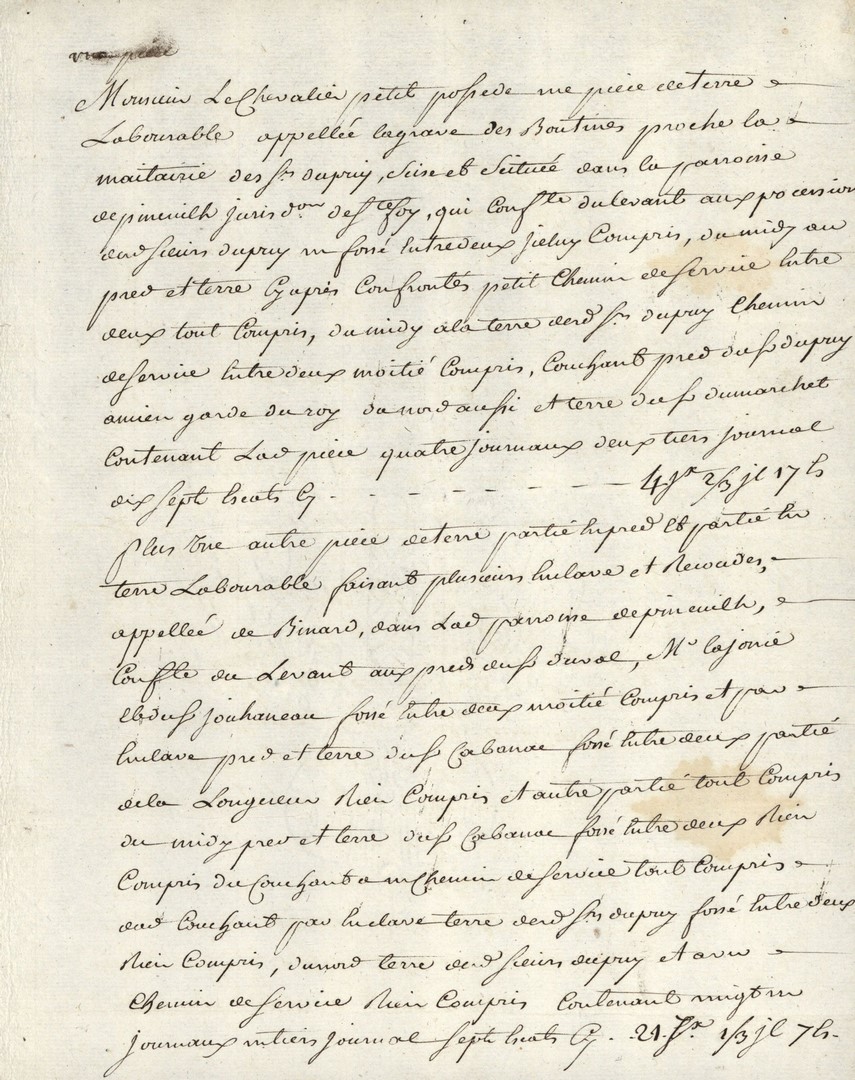 une pièce
Monsieur Le Chevalier petit possede une piece de terre
Labourable appellée la grave des Boutines proche la
maitairie des Srs dupuy, Sise et Scituée dans la parroisse
de pineuilh jurisdon de Ste foy, qui Confte du levant aux possession
desd sieurs dupuy un fossé Entredeux Jceluy Compris, du midy au
pred et terre Cy après Confrontés petit Chemin de Service Entre
deux tout Compris, du midy a la terre desd Srs dupuy Chemin
de Service Entre deux moitié Compris, Couchant pred du Sr dupuy
ancien garde du roy du nord aussi et terre du Sr dumarchet
Contenant Lad piece quatre Journaux deux tiers Journal
dix sept Escats Cy - - - - - 4 Jx 2/3 jl 17 Es
Plus Une autre piece de terre partié En pred Et partié En
terre Labourable faisant plusieurs Enclave et Recoudes,
appelleé de Binard, dans Lad parroisse de pineuilh,
Confte du Levant aux preds du Sr duval, Mr lajonie
Et du Sr Jouhaneau fossé Entre deux moitié Compris et par
Enclave pred et terre du Sr Cabanac fossé Entre deux partié
de la Longueur Rien Compris et autre partié tout Compris
du midy pred et terre du Sr Cabanac fossé Entre deux Rien
Compris du Couchant a un Chemin de Service tout Compris
dud Couchant par Enclave terre desd Srs dupuy fossé Entre deux
Rien Compris, du nord terre desd sieurs dupuy et a un
Chemin de Service Rien Compris Contenant vingt un
Journaux un tiers Journal Sept Escats Cy - 21 Jx 1/3 jl 7 Es.